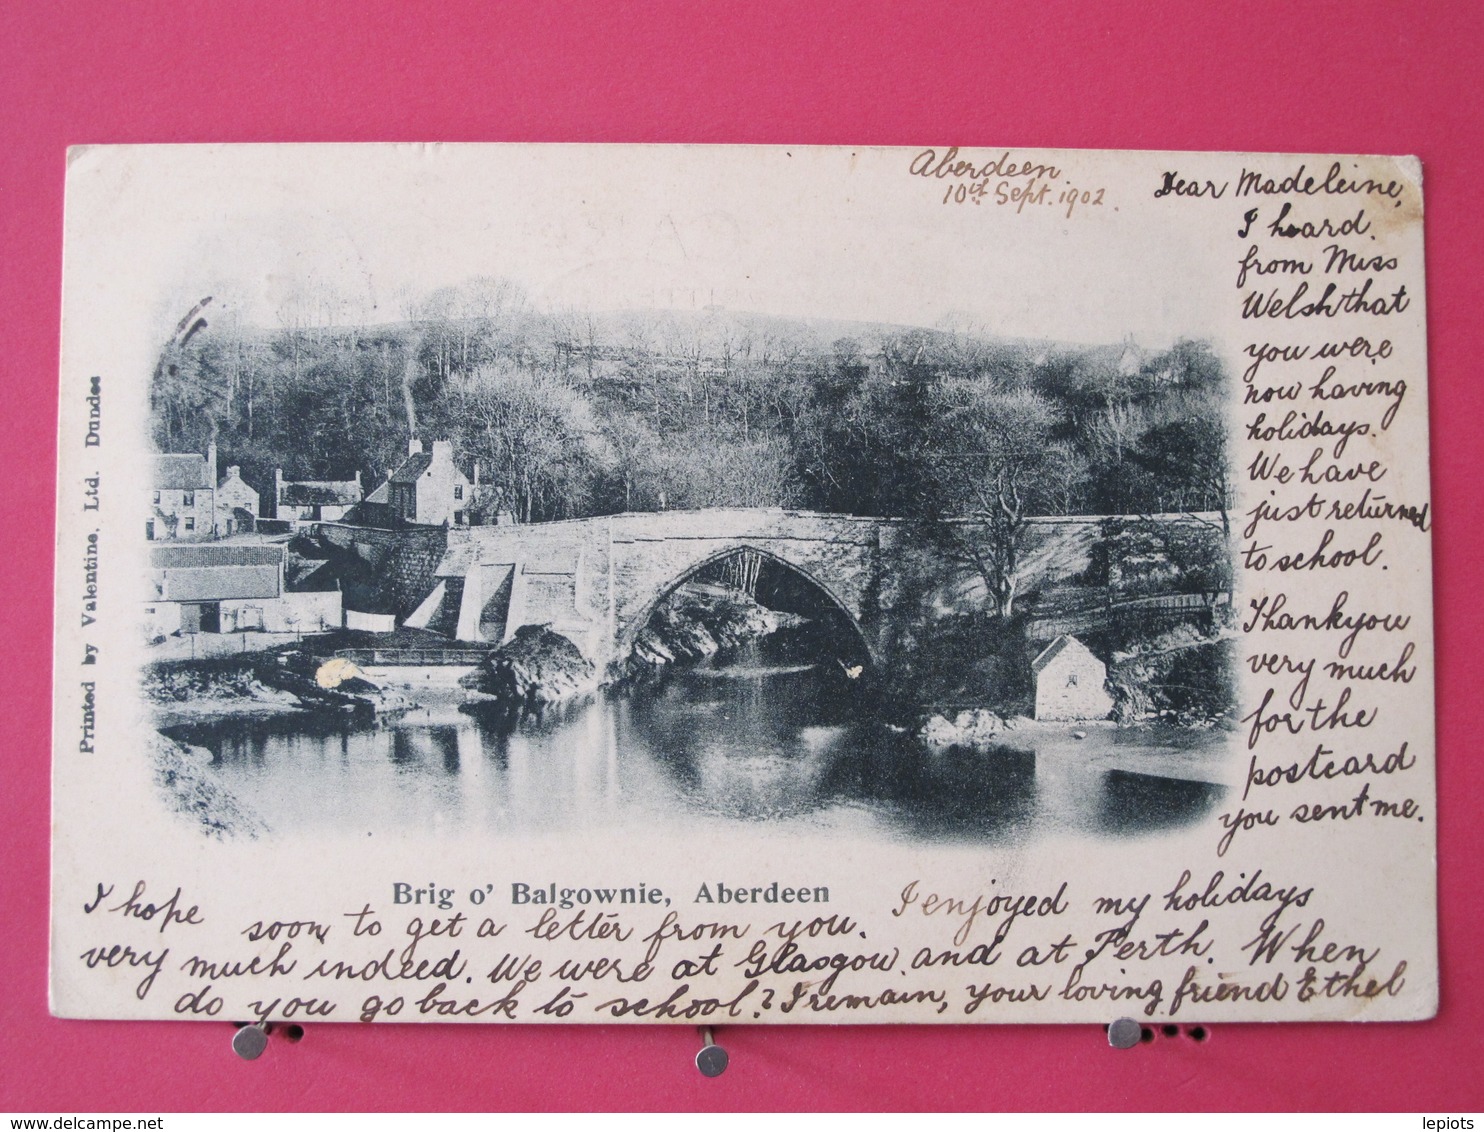 Aberdeen
10th Sept. 1902.
Dear Madeleine,
I heard.
from Miss
Welsh that
you were
now having
holidays.
We have
just returned
to school.
Thank you
very much
for the
postcard
you sent me.
Printed by Valentine, Ltd. Dundee
Brig o' Balgownie, Aberdeen
I hope soon to get a letter from you. I enjoyed my holidays
very much indeed. We were at Glasgow and at Perth. When
do you go back to school? I remain, your loving friend Ethel
delcampe.net
lepiots